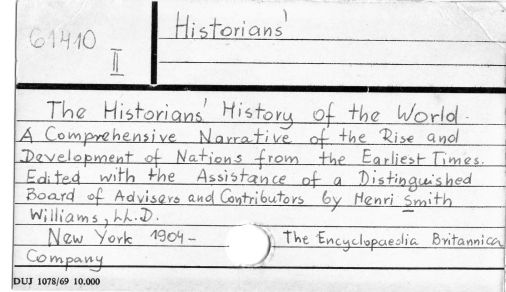 61410
II
Historians'
The Historians' History of the World.
A Comprehensive Narrative of the Rise and
Development of Nations from the Earliest Times.
Edited with the Assistance of a Distinguished
Board of Advisers and Contributors by Henri Smith
Williams, LL.D.
New York 1904- The Encyclopaedia Britannica
Company
DUJ 1078/69 10.000